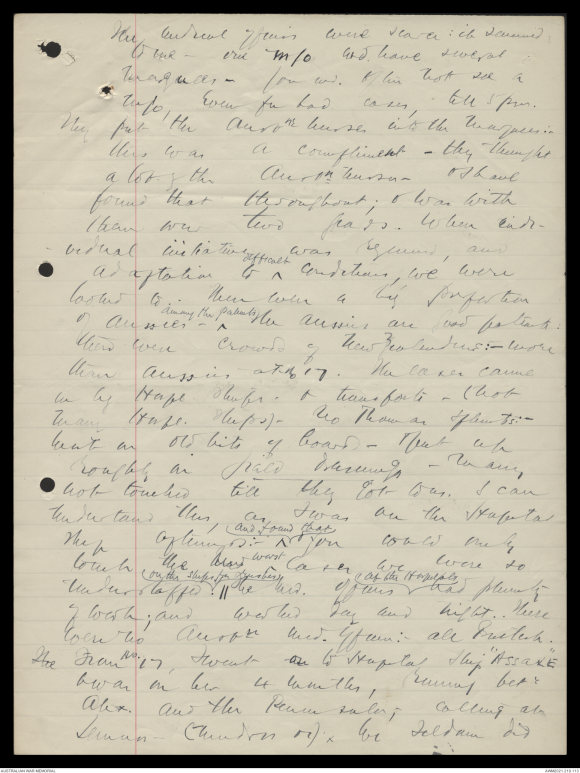 The medical officers were scarce: it seemed
to me - one M/O wd. have several
marquees - you wd. often not see a
M/O, even for bad cases, till 5 p.m.
They put the Austn nurses into the marquees:-
this was a compliment - they thought
a lot of the Austn nurses - I have
found that throughout; I was with
them over two years. When indi-
vidual initiative was required, and
adaptation to ^ difficult conditions, we were
looked to. There were a big proportion
of Aussies - ^ among the patients the Aussies are good patients:
there were crowds of New Zealanders:- more
than Aussies at No 17. The cases came
in by Hosp. Ships & transports - (not
many Hosp. Ships) - No Thomas Splints:-
bent on old bits of board - Sent up
roughly in field dressings - Many
not touched till they got to us. I can
understand this, as I was on the Hospital
Ship afterwards:- ^ and found that you could only
touch the worst cases we were so
understaffed on the ships for nursing, the med. officers at the Hospitals had plenty
of work; and worked day and night. There
were no Austn med. officers:- all British.
From No. 17, I went to Hospital Ship "Assaye"
& was on her 4 months, running betn
Alex. and the Peninsula; calling at
Lemnos - (Mudros). We seldom did
AUSTRALIAN WAR MEMORIAL